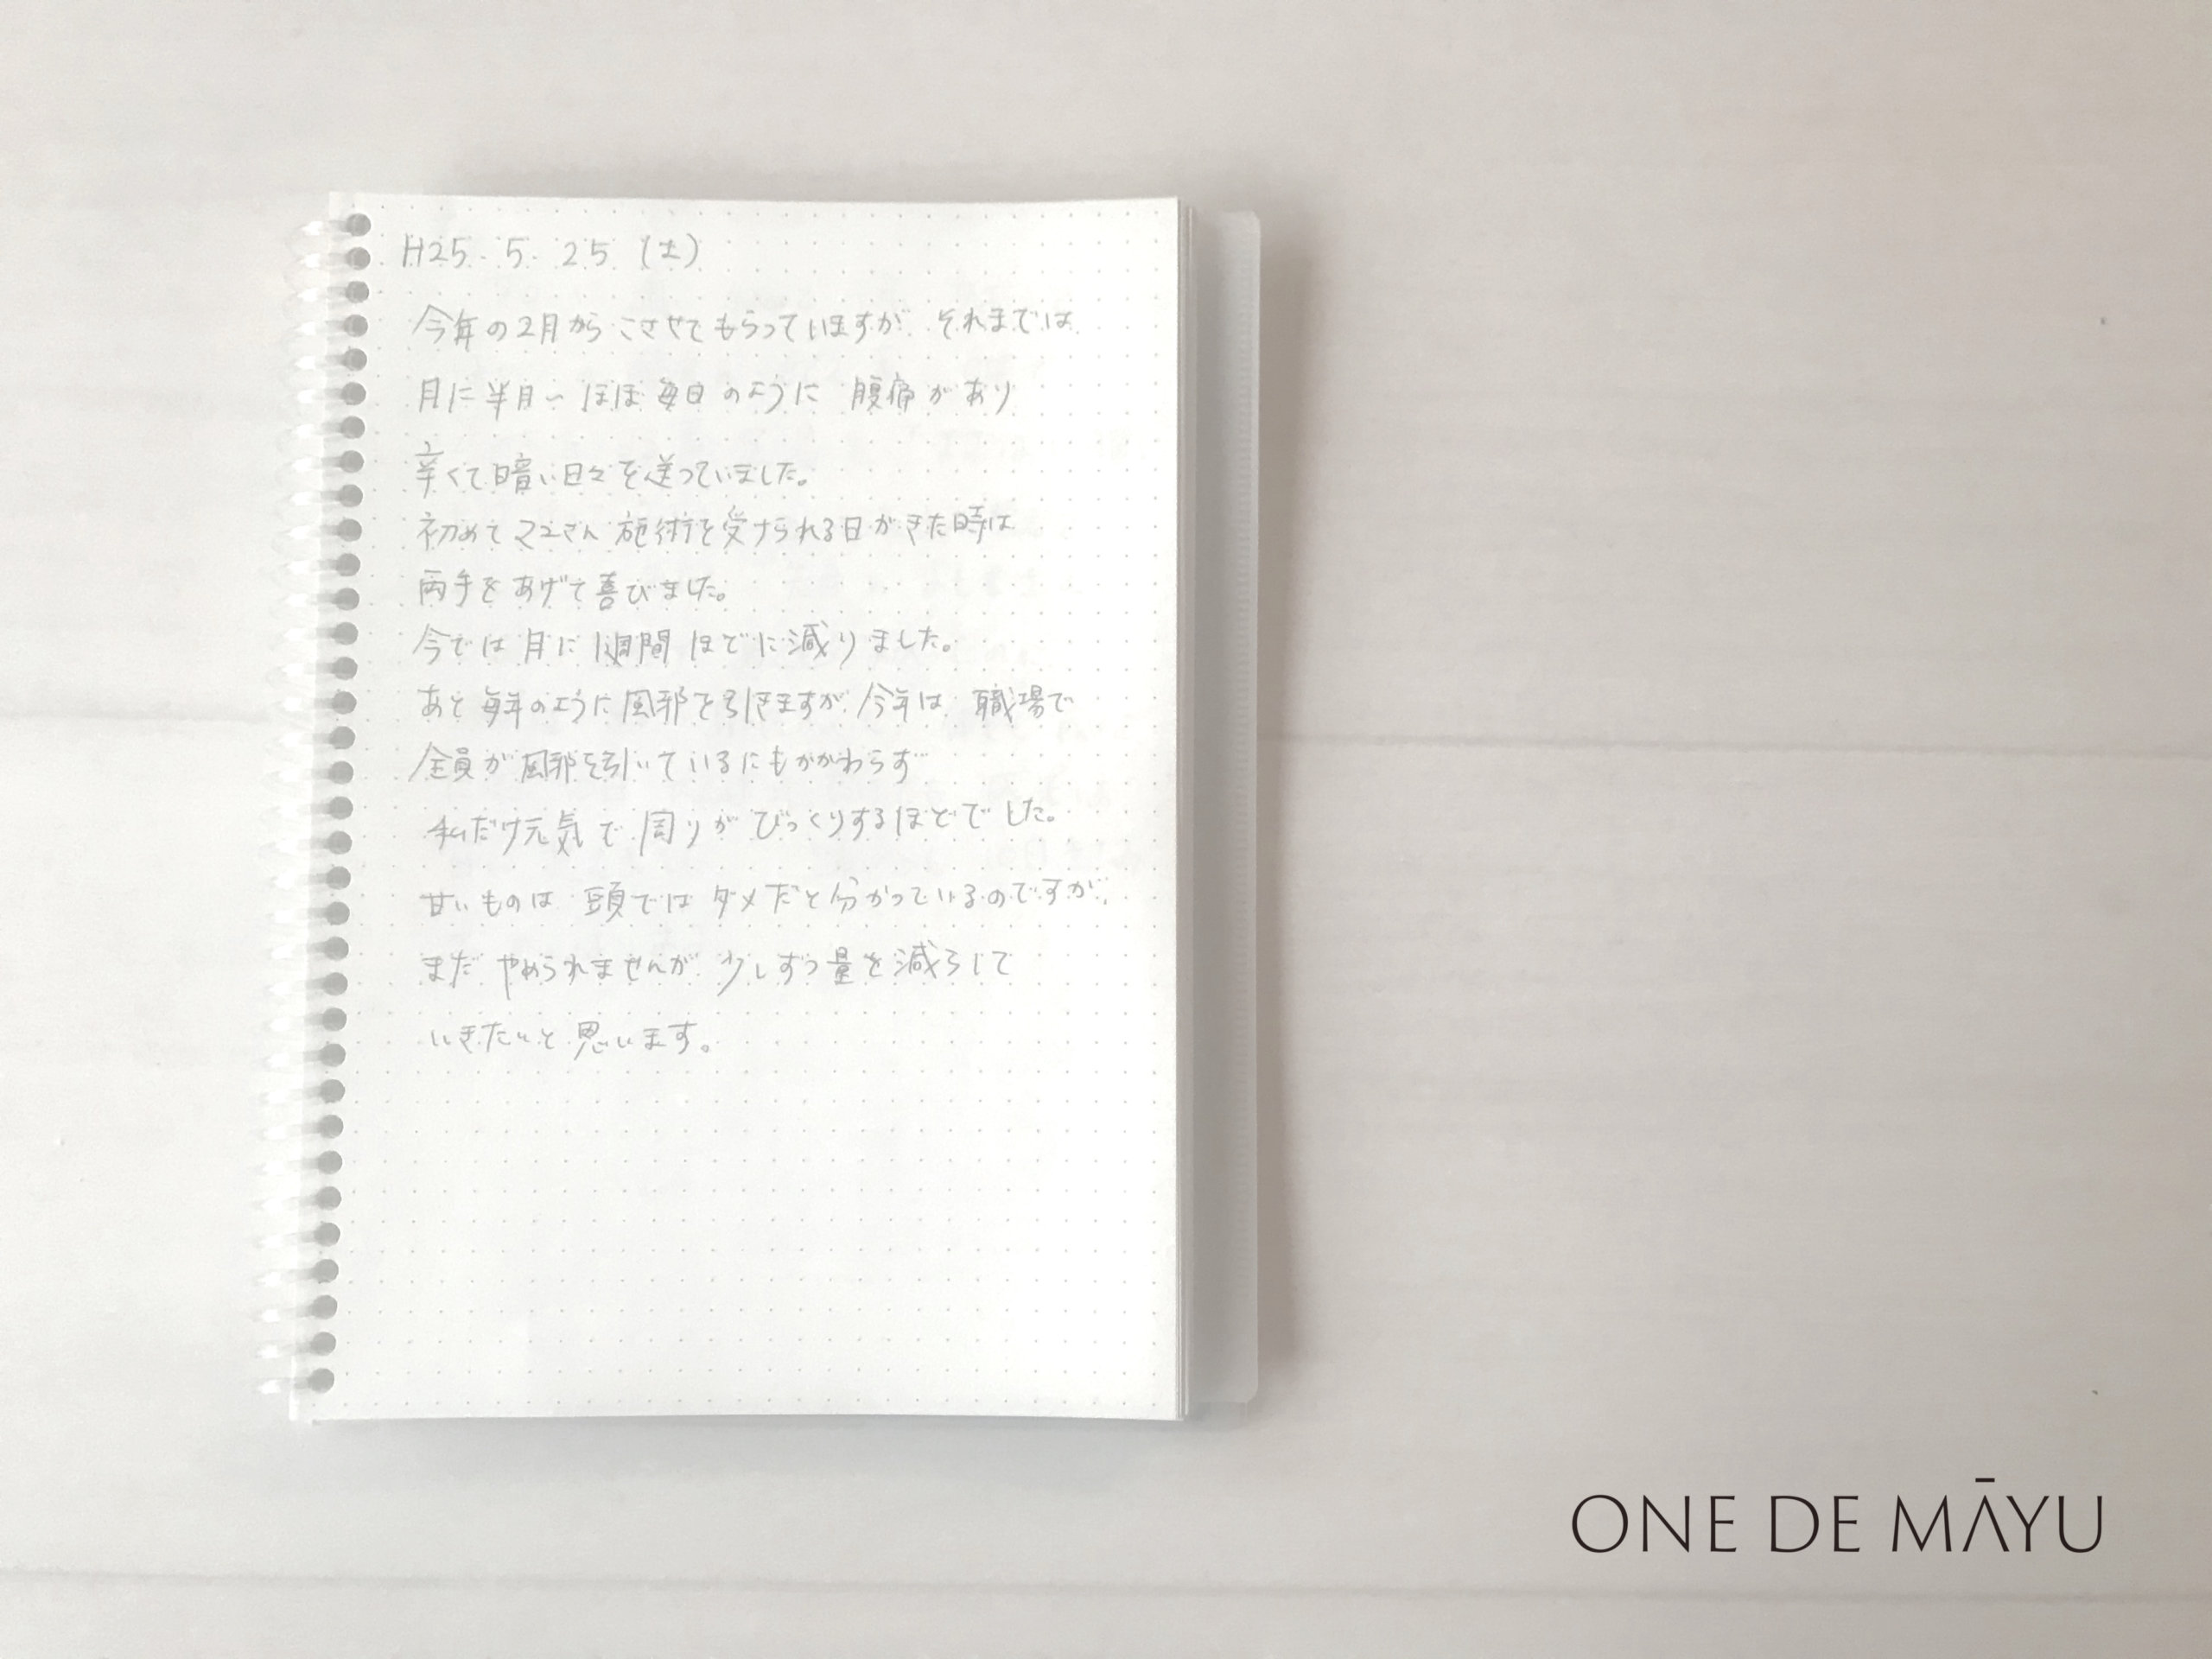 H25. 5. 25 (土)
今年の2月からこさせてもらっていますが、それまでは
月に半月〜ほぼ毎日のように 腹痛があり
辛くて暗い日々を送っていました。
初めてマユさん施術を受けられる日がきた時は
両手をあげて喜びました。
今では月に1週間ほどに減りました。
あと毎年のように風邪を引きますが、今年は 職場で
全員が風邪を引いているにもかかわらず
私だけ元気で周りがびっくりするほどでした。
甘いものは 頭ではダメだと分かっているのですが、
まだ やめられませんが 少しずつ量を減らして
いきたいと思います。
ONE DE MĀYU